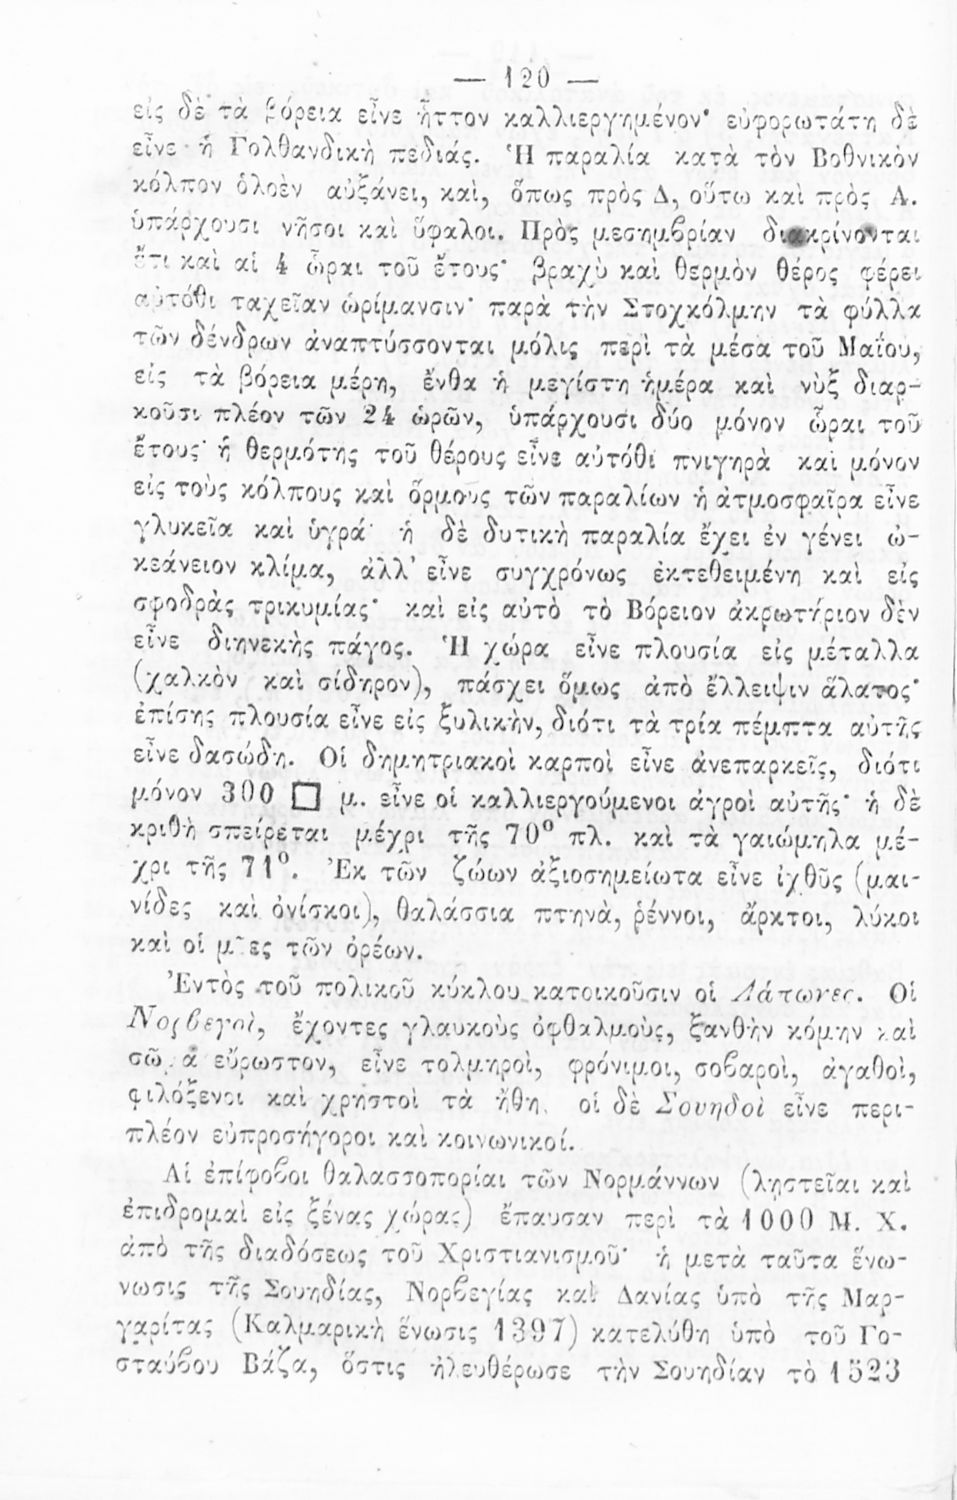 — 120 —
εἰς δὲ τὰ βόρεια εἶνε ἧττον καλλιεργημένον· εὐφορωτάτη δὲ
εἶνε ἡ Γολθανδικὴ πεδιάς. Ἡ παραλία κατὰ τὸν Βοθνικὸν
κόλπον ὁλοὲν αὐξάνει, καὶ, ὅπως πρὸς Δ, οὕτω καὶ πρὸς Α.
ὑπάρχουσι νῆσοι καὶ ὕφαλοι. Πρὸς μεσημβρίαν διακρίνονται
ἔτι καὶ αἱ 4 ὧραι τοῦ ἔτους· βραχὺ καὶ θερμὸν θέρος φέρει
αὐτόθι ταχεῖαν ὡρίμανσιν· παρὰ τὴν Στοχκόλμην τὰ φύλλα
τῶν δένδρων ἀναπτύσσονται μόλις περὶ τὰ μέσα τοῦ Μαΐου,
εἰς τὰ βόρεια μέρη, ἔνθα ἡ μεγίστη ἡμέρα καὶ νὺξ διαρ-
κοῦσι πλέον τῶν 24 ὡρῶν, ὑπάρχουσι δύο μόνον ὧραι τοῦ
ἔτους· ἡ θερμότης τοῦ θέρους εἶνε αὐτόθι πνιγηρὰ καὶ μόνον
εἰς τοὺς κόλπους καὶ ὅρμους τῶν παραλίων ἡ ἀτμοσφαῖρα εἶνε
γλυκεῖα καὶ ὑγρά· ἡ δὲ δυτικὴ παραλία ἔχει ἐν γένει ὠ-
κεάνειον κλίμα, ἀλλ' εἶνε συγχρόνως ἐκτεθειμένη καὶ εἰς
σφοδρὰς τρικυμίας· καὶ εἰς αὐτὸ τὸ Βόρειον ἀκρωτήριον δὲν
εἶνε διηνεκὴς πάγος. Ἡ χώρα εἶνε πλουσία εἰς μέταλλα
(χαλκὸν καὶ σίδηρον), πάσχει ὅμως ἀπὸ ἔλλειψιν ἅλατος·
ἐπίσης πλουσία εἶνε εἰς ξυλικὴν, διότι τὰ τρία πέμπτα αὐτῆς
εἶνε δασώδη. Οἱ δημητριακοὶ καρποὶ εἶνε ἀνεπαρκεῖς, διότι
μόνον 300 □ μ. εἶνε οἱ καλλιεργούμενοι ἀγροὶ αὐτῆς· ἡ δὲ
κριθὴ σπείρεται μέχρι τῆς 70° πλ. καὶ τὰ γαιώμηλα μέ-
χρι τῆς 71°. Ἐκ τῶν ζώων ἀξιοσημείωτα εἶνε ἰχθῦς (μαι-
νίδες καὶ ὀνίσκοι), θαλάσσια πτηνὰ, ῥέννοι, ἄρκτοι, λύκοι
καὶ οἱ μῦες τῶν ὀρέων.
Ἐντὸς τοῦ πολικοῦ κύκλου κατοικοῦσιν οἱ Λάπωνες. Οἱ
Νορβεγοὶ, ἔχοντες γλαυκοὺς ὀφθαλμοὺς, ξανθὴν κόμην καὶ
σῶμα εὔρωστον, εἶνε τολμηροὶ, φρόνιμοι, σοβαροὶ, ἀγαθοὶ,
φιλόξενοι καὶ χρηστοὶ τὰ ἤθη, οἱ δὲ Σουηδοὶ εἶνε περι-
πλέον εὐπροσήγοροι καὶ κοινωνικοί.
Αἱ ἐπίφοβοι θαλασσοπορίαι τῶν Νορμάννων (λῃστεῖαι καὶ
ἐπιδρομαὶ εἰς ξένας χώρας) ἔπαυσαν περὶ τὰ 1000 Μ. Χ.
ἀπὸ τῆς διαδόσεως τοῦ Χριστιανισμοῦ· ἡ μετὰ ταῦτα ἕνω-
νωσις τῆς Σουηδίας, Νορβεγίας καὶ Δανίας ὑπὸ τῆς Μαρ-
γαρίτας (Καλμαρικὴ ἕνωσις 1397) κατελύθη ὑπὸ τοῦ Γο-
σταύβου Βάζα, ὅστις ἠλευθέρωσε τὴν Σουηδίαν τὸ 1523